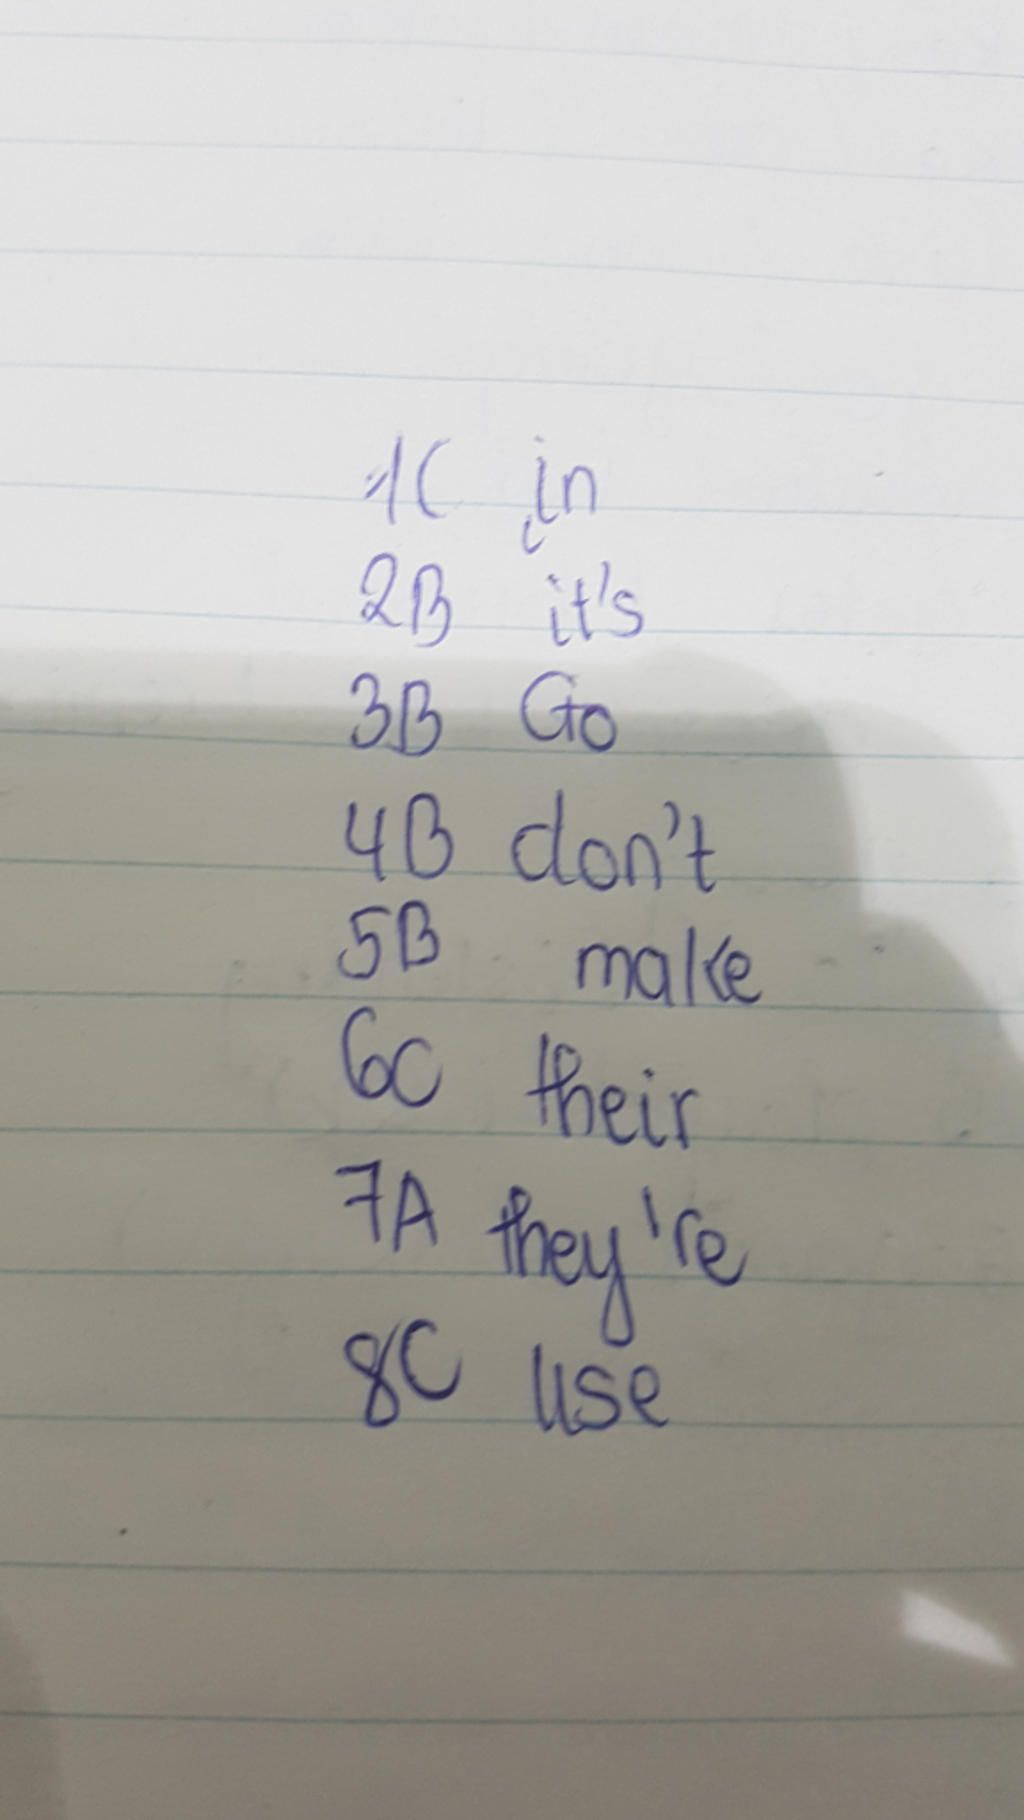 1C in
2B it's
3B Go
4B don't
5B make
6C their
7A they're
8C use